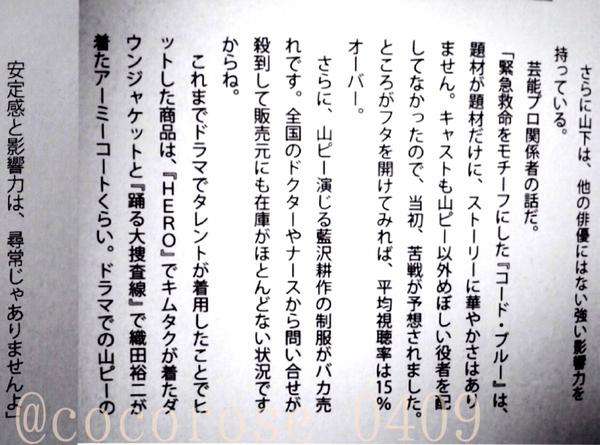 さらに山下は、他の俳優にはない強い影響力を
持っている。
芸能プロ関係者の話だ。
「緊急救命をモチーフにした『コード・ブルー』は、
題材が題材だけに、ストーリーに華やかさはあり
ません。キャストも山ピー以外めぼしい役者を配
してなかったので、当初、苦戦が予想されました。
ところがフタを開けてみれば、平均視聴率は15％
オーバー。
さらに、山ピー演じる藍沢耕作の制服がバカ売
れです。全国のドクターやナースから問い合せが
殺到して販売元にも在庫がほとんどない状況です
からね。
これまでドラマでタレントが着用したことでヒ
ットした商品は、『HERO』でキムタクが着たダ
ウンジャケットと『踊る大捜査線』で織田裕二が
着たアーミーコートくらい。ドラマでの山ピーの
安定感と影響力は、尋常じゃありませんよ」
@cocorose_0409